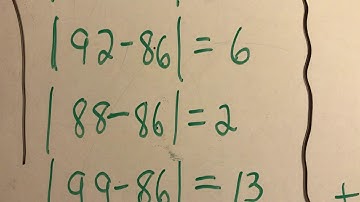 |92-86|=6
|88-86|=2
|99-86|=13
+